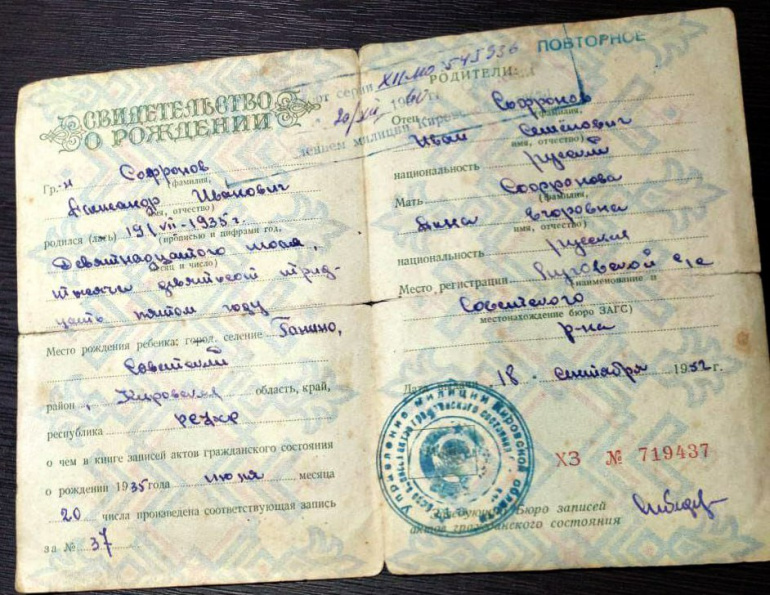 СВИДЕТЕЛЬСТВО
О РОЖДЕНИИ
Гр.-н Софронов
(фамилия,
Александр Иванович
имя, отчество)
родился (лась) 19/VII-1935 г.
(прописью и цифрами год,
Девятнадцатого июля,
месяц и число)
тысяча девятьсот трид-
цать пятом году
Место рождения ребенка: город, селение Ганино,
Советский
район, Кировская область, край,
республика РСФСР
о чем в книге записей актов гражданского состояния
о рождении 1935 года июня месяца
20 числа произведена соответствующая запись
за № 37
ПОВТОРНОЕ
серии XII МЮ 545336
20/XII 1960 г.
РОДИТЕЛИ:
Отец Софронов
(фамилия,
Иван Семёнович
имя, отчество)
национальность русский
Мать Софронова
(фамилия,
Анна Егоровна
имя, отчество)
национальность русская
Место регистрации с/с
(наименование и
Советского
местонахождение бюро ЗАГС)
р-на
Дата выдачи 18 сентября 1952 г.
Управление милиции Кировской
ХЗ № 719437
Заведующий Бюро записей
актов гражданского состояния